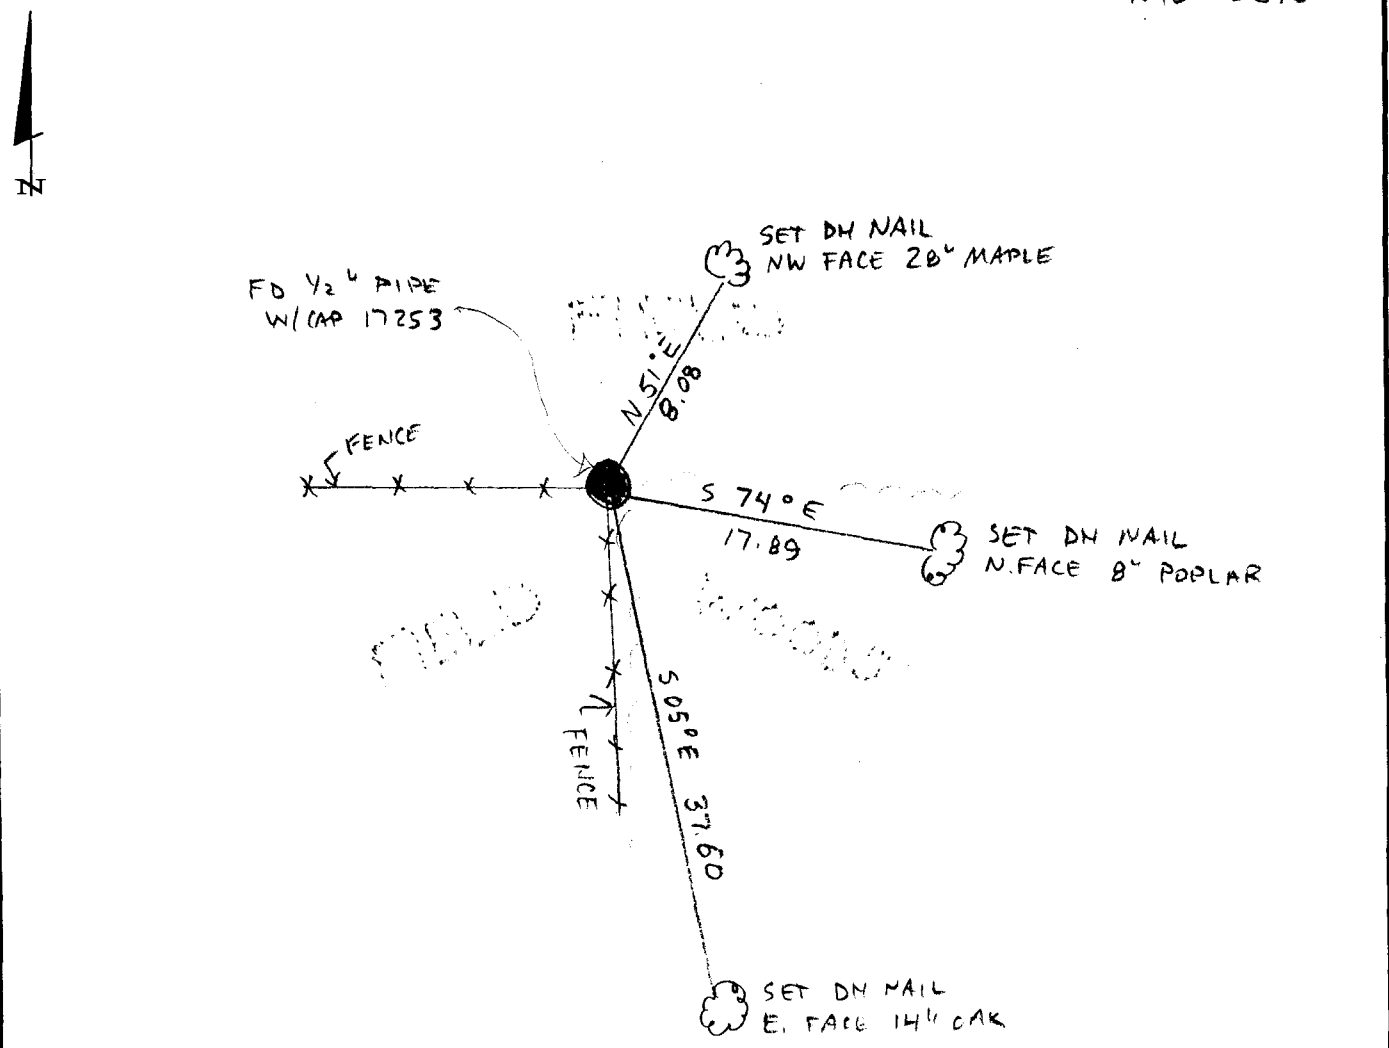 N
SET DH NAIL
NW FACE 28" MAPLE
FD 1/2" PIPE
W/CAP 17253
FIELD
N 51° E
8.08
FENCE
S 74° E
17.89
SET DH NAIL
N. FACE 8" POPLAR
FIELD
WOODS
FENCE
S 05° E 37.60
SET DH NAIL
E. FACE 14" OAK